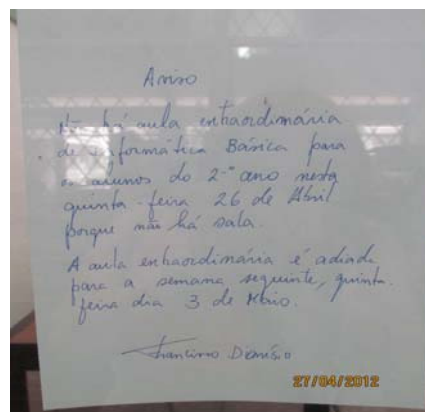 Aviso
Não há aula extraordinária
de informática Básica para
os alunos do 2-º ano nesta
quinta-feira 26 de Abril
porque não há sala.
A aula extraordinária é adiada
para a semana seguinte, quinta-
feira dia 3 de Maio.
Francisco Dionísio
27/04/2012